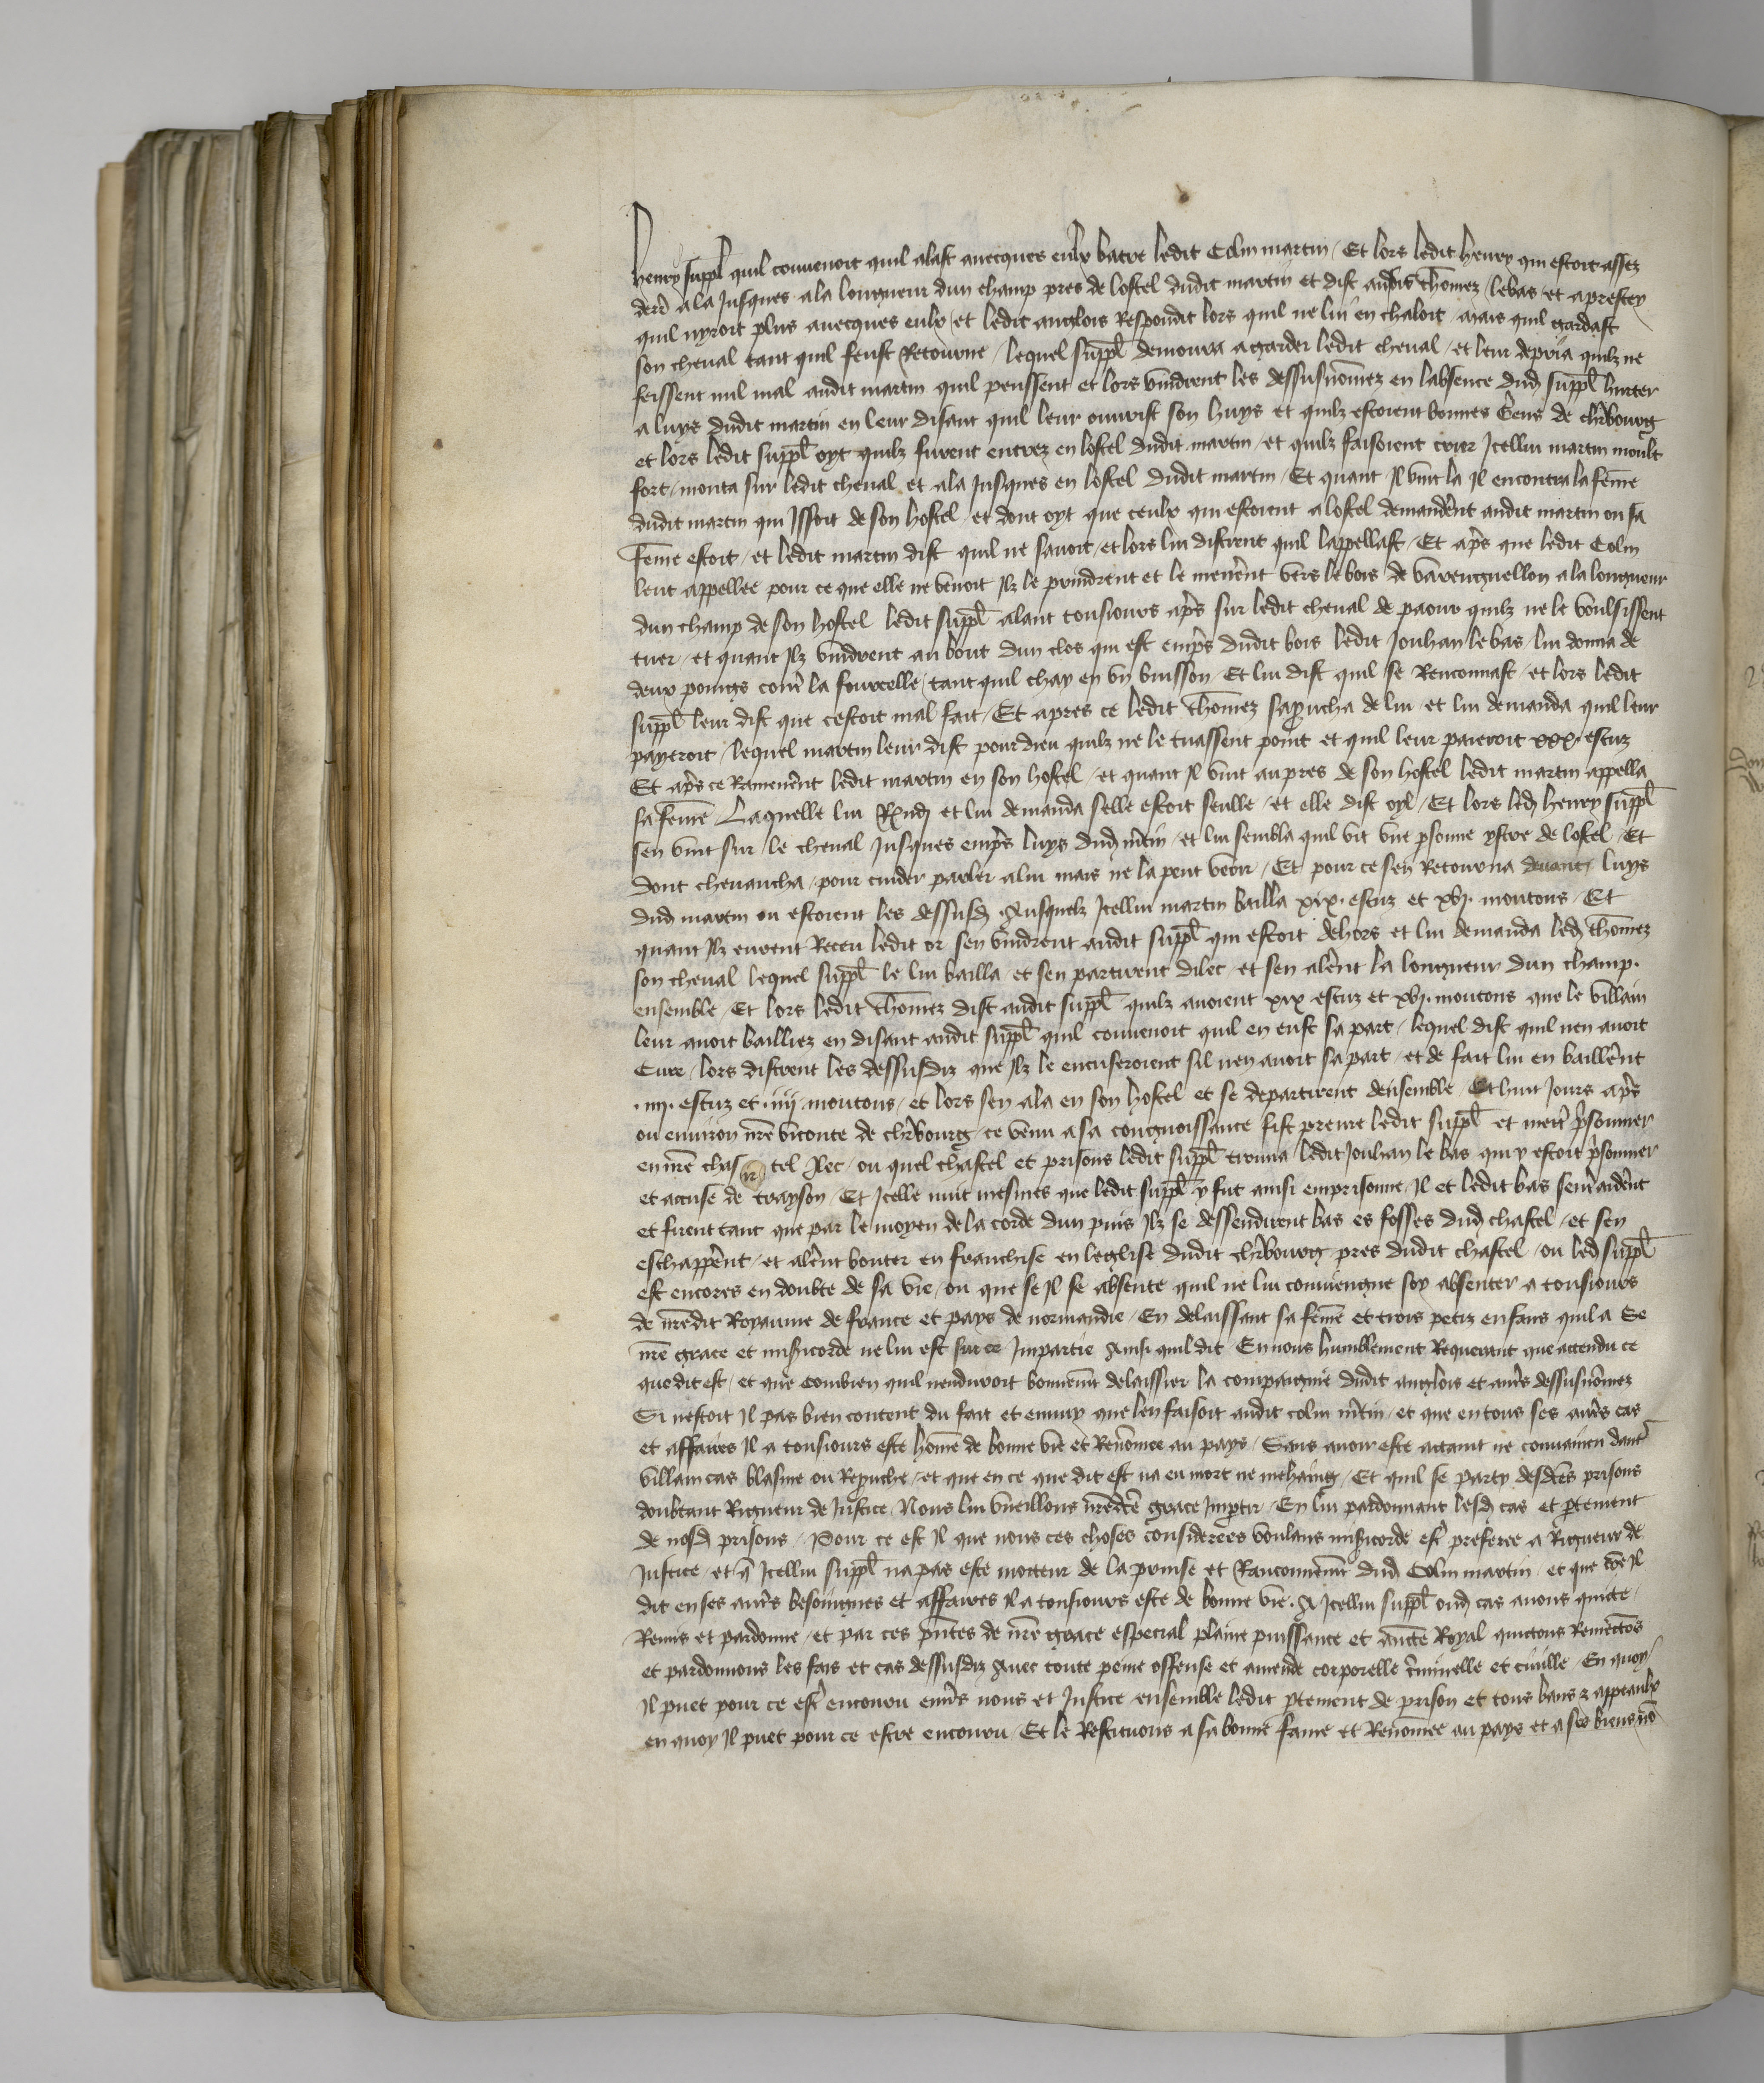 henry suppl quil conuenoit quil alast auecques eulx batre ledit Colin martin / Et lors ledit henry qui estoit assez
derr ala Jusques ala longueur dun champ pres de lostel dudit martin et dist ausdis thomez / lebas et aprestey
quil nyroit plus auecques eulx / et ledit anglois Respondit lors quil ne lui en chaloit / mais quil gardast
son cheual tant quil feust Retourne / lequel suppl demoura agarder ledit cheual / et leur depria quilz ne
feissent nul mal audit martin quil peussent et lors vindrent les dessusnomez en labsence dud suppl hurter
a luys dudit martin en leur disant quil leur ouurist son huys et quilz estoient bonnes Gens de chrbourg
et lors ledit suppl oyt quilz furent entrez en lostel dudit martin / et quilz faisoient crier Jcellui martin moult
fort / monta sur ledit cheual et ala Jusques en lostel dudit martin / Et quant Jl vint la Jl encontra la feme
dudit martin qui Jssoit de son hostel / et dont oyt que ceulx qui estoient a lostel demandent audit martin ou sa
feme estoit / et ledit martin dist quil ne sauoit / et lors lui distrent quil lappellast / Et aps que ledit Colin
leut appellee pour ce que elle ne venoit Jlz le prindrent et le menent vers le bois de varenguellon a la longueur
dun champ de son hostel ledit suppl alant tousiours aps sur ledit cheual de paour quilz ne le voulsissent
tuer / et quant Jlz vindrent au bout dun clos qui est emps dudit bois ledit Jouhan le bas / lui donna de
deux poings cont la fourcelle / tant quil chay en vn buisson / Et lui dist quil se Renconnast / et lors ledit
suppl leur dist que cestoit mal fait / Et apres ce ledit thomez sapucha de lui / et lui demanda quil leur
payeroit / lequel martin leur dist pour dieu quilz ne le tuassent point et quil leur paieroit xxx. escuz
Et aps ce Ramenent ledit martin en son hostel / et quant Jl vint aupres de son hostel ledit martin appella
sa feme / Laquelle lui Rnd et lui demanda selle estoit seulle / et elle dist oyl / Et lors led henry suppl
sen vint sur le cheual Jusques emps luys dud mtin / et lui sembla quil vit vne psonne ystre de lostel / Et
dont cheuaucha / pour cuider parler alui mais ne la peut veoir / Et pour ce sen Retourna deuant luys
dud martin ou estoient les dessusd / Ausquelz Jcellui martin bailla xix. escuz et xvj. moutons / Et
quant Jlz eurent Receu ledit or sen vindrent audit suppl qui estoit dehors et lui demanda led thomez
son cheual lequel suppl le lui bailla / et sen partirent dilec / et sen alent la longueur dun champ.
ensemble / Et lors ledit thomez dist audit suppl quilz auoient xix escuz et xvj. moutons que le villain
leur auoit bailliez en disant audit suppl quil conuenoit quil en eust sa part / lequel dist quil nen auoit
Cure / lors distrent les dessusdiz que Jlz le encuseroient sil nen auoit sa part / et de fait lui en baillent
.iiij. escuz et .iiij. moutons / et lors sen ala en son hostel et se departirent densemble / Et huit Jours aps
ou enuiron nre viconte de chrbourg / ce venu a sa congnoissance fist prenre ledit suppl et mett psonnier
en nre chas tel Jlec / ou quel chastel et prisons ledit suppl trouua ledit Jouhan le bas qui y estoit psonnier
et accuse de trayson / Et Jcelle nuit mesmes que ledit suppl y fut ainsi emprisonne / Jl et ledit bas sentraident
et firent tant que par le moyen de la corde dun puis Jlz se dessendirent bas es fosses dud chastel / et sen
eschappent / et alent bouter en franchise en leglise dudit chrbourg / pres dudit chastel / ou led suppl
est encores en doubte de sa vie / ou que se Jl se absente quil ne lui conuiengne soy absenter a tousiours
de nredit Royaume de france et pays de normandie / En delaissant sa feme et trois petiz enfans quil a Se
nre grace et misicorde ne lui est sur ce Jmpartie Ainsi quil dit / En nous humblement Requerant que attendu ce
que dit est / et que combien quil nenduroit bonnemt delaissier la compaignie dudit anglois et auts dessusnomez
Si nestoit Jl pas bien content du fait et ennuy que len faisoit audit colin mtin / et que en tous ses auts cas
et affaires Jl a tousiours este home de bonne vie et Renomee au pays / Sans auoir este actaint ne conuaincu daut
villain cas blasme ou Repuche / et que en ce que dit est na eu mort ne mehaing / Et quil se party desdces prisons
doubtant Rigueur de Justice / Nous lui vueillons nredce grace Jmptir / En lui pardonnant lesd cas et ptement
de nosd prisons / Pour ce est Jl que nous ces choses considerees voulans misicorde est preferee a Rigueur de
Justice / et q Jcellui suppl na pas este motteur de la prinse et Ranconnemt dud Colin martin / et que coe Jl
dit en ses auts besoingnes et affaires Jl a tousiours este de bonne vie. A Jcellui suppl oud cas auons quicte /
Remis et pardonne / et par ces pntes de nre grace especial plaine puissance et auctte Royal quictons Remectos
et pardonnons les fais et cas dessusdiz Auec toute peine offense et amende corporelle criminelle et ciuille / En quoy
Jl puet pour ce est encouru enuers nous et Justice ensemble ledit ptement de prison et tous bans & appeaulx
en quoy Jl puet pour ce estre encouru / Et le Restituons a sa bonne fame et Renomee au pays et a ses biens no